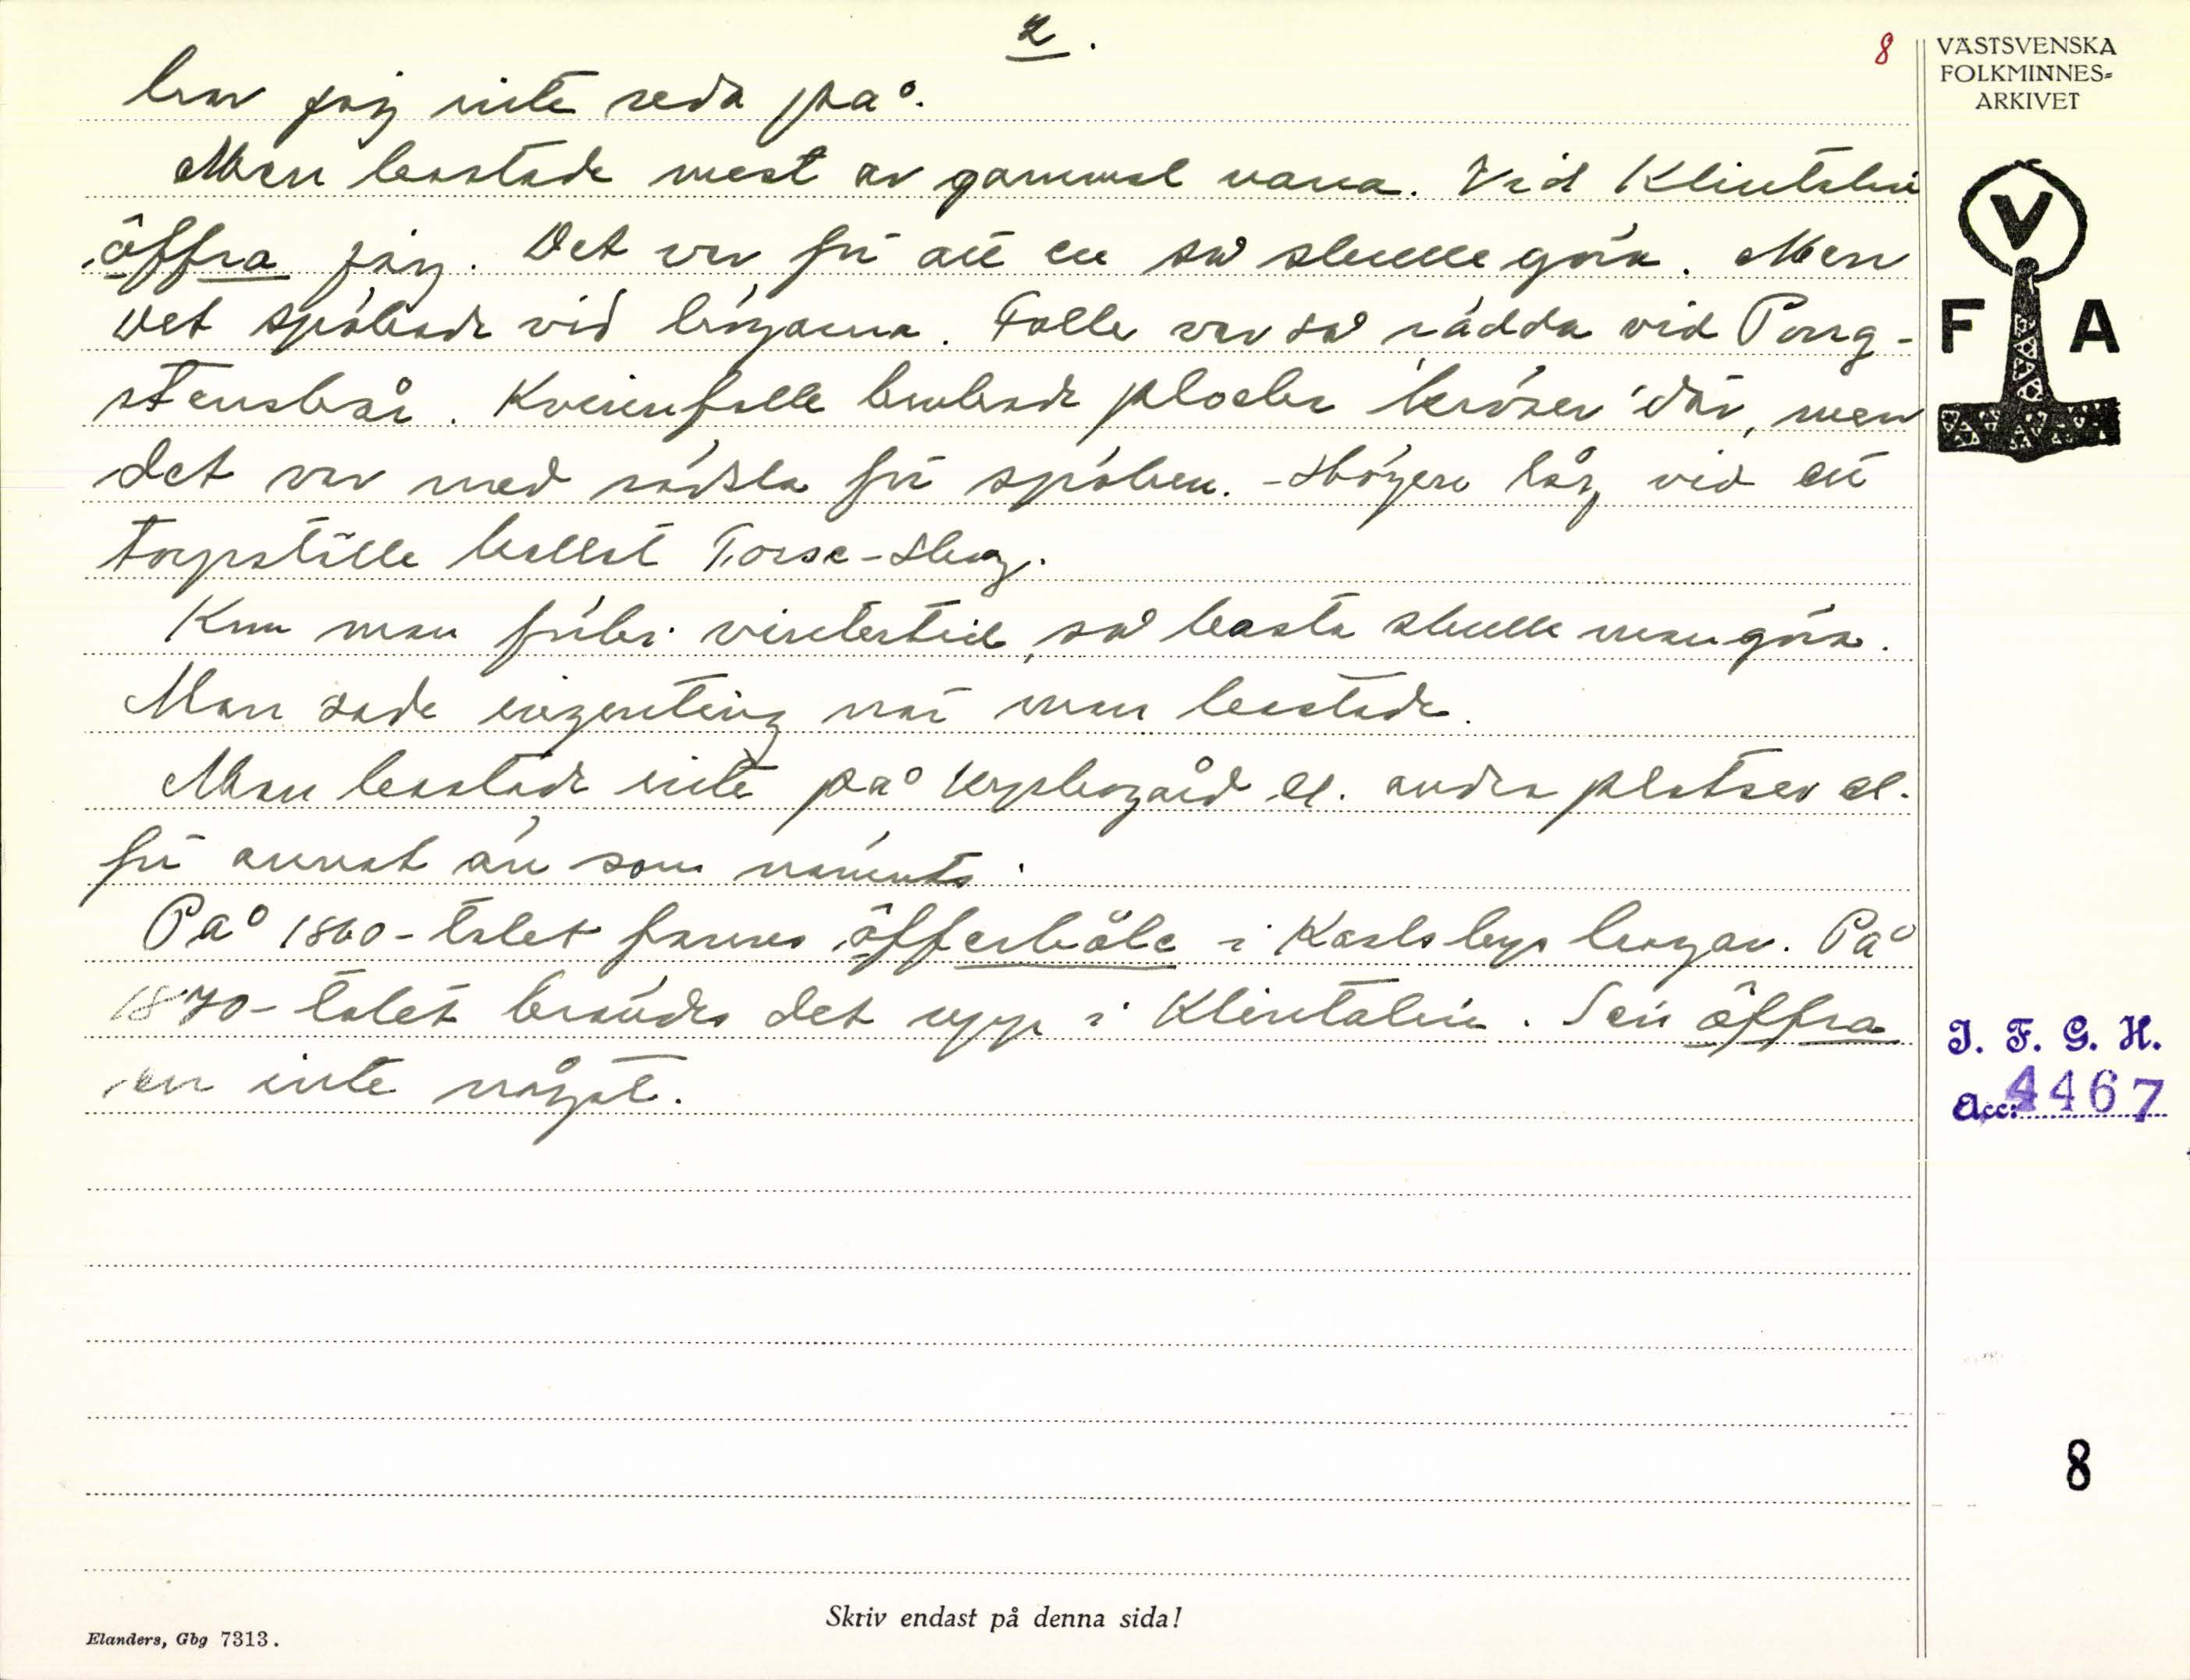 2.
8
har jag inte reda på.
Man kastade mest av gammal vana. Vid Klintalin
öffra jag. Det var för att en så skulle göra. Men
det spökade vid högarna. Folk var så rädda vid Pong-
stenskår. Kvinnfolk brukade plocka 'kröser' där, men
det var med rädsla för spöken. - Högen låg vid ett
torpställe kallat Torse-skog.
Kom man förbi vintertid, så kasta skulle man göra.
Man sade ingenting när man kastade.
Man kastade inte på kyrkogård el. andra platser el.
för annat än som nämnts.
På 1860-talet fanns öfferbåle i Karlsbyskogar. På
1870-talet brändes det upp i Klintalin. Sen öffra
en inte något.
VÄSTSVENSKA
FOLKMINNES-
ARKIVET
V
F A
I. F. G. H.
Acc: 4467
8
Skriv endast på denna sida!
Elanders, Gbg 7313.